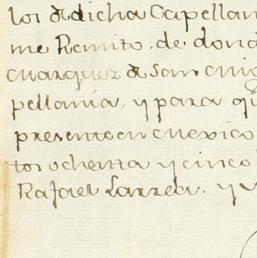 los de dicha Capellan
me Remito. de dond
Marquez de San Mig
pellania, y para q
presente en Mexico
tos ochenta y cinco
Rafael Larrea. y v